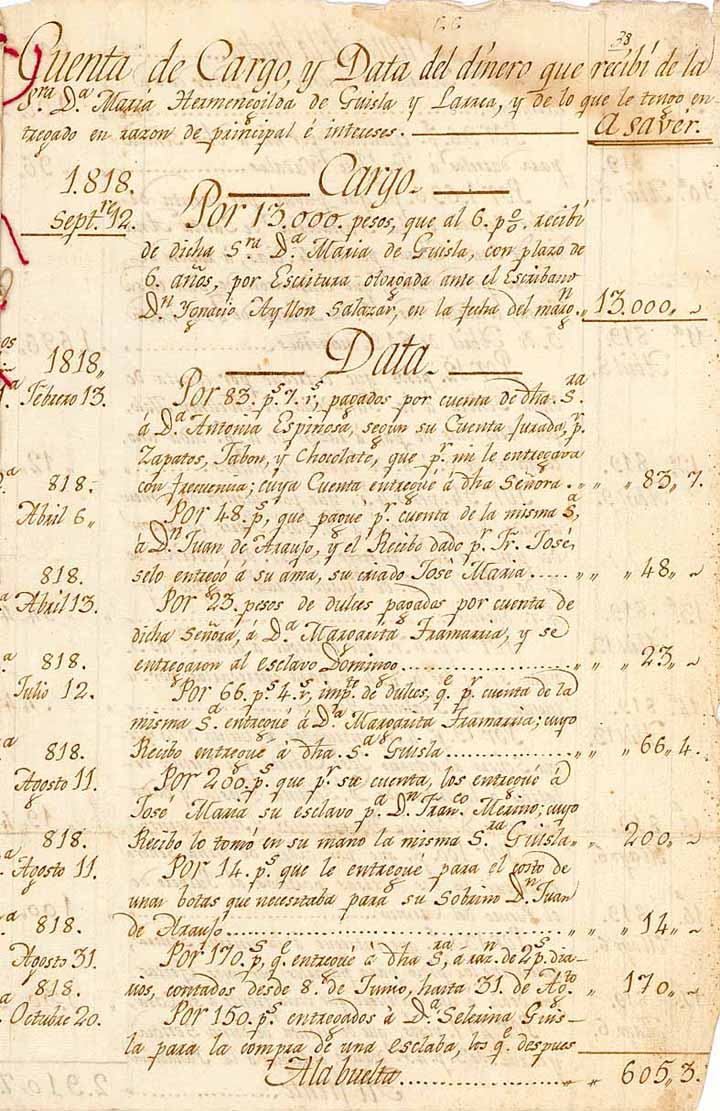 38
Cuenta de Cargo, y Data del dinero que recibí de la
Sra. Da. Maria Hermenegilda de Guisla y Larrea, y de lo que le tengo en
tregado en razon de principal é intereses. A saver.
1.818. Cargo.
Septre. 12. Por 13.000. pesos, que al 6. p%. recibí
de dicha Sra. Da. Maria de Guisla, con plazo de
6. años, por Escritura otorgada ante el Escribano
Dn. Ygnacio Ayllon Salazar, en la fecha del margn. 13.000,, ~
Data.
1818,,
Febrero 13. Por 83. ps. 7. rs, pagados por cuenta de dha. Sra.
á Da. Antonia Espinosa, segun su Cuenta Jurada, pr.
Zapatos, Jabon, y Chocolate, que pr. mi le entregava
818. con frecuencia; cuya Cuenta entregué á dha Señora. ,, ,, ,, 83,, 7.
Abril 6,, Por 48. ps, que pagué pr. cuenta de la misma Sa,
á Dn. Juan de Araujo, y el Recibo dado pr. Fr. José,
818. selo entregó á su ama, su criado José Maria..... ,, ,, ,, 48,, ~
Abril 13. Por 23. pesos de dulces pagados por cuenta de
dicha Señora, á Da. Margarita Framarria, y se
818. entregaron al esclavo Domingo.......... ,, ,, ,, 23,, ~
Julio 12. Por 66. ps. 4. rs, impte. de dulces, qe. pr. cuenta de la
misma Sa. entregué á Da. Margarita Framarria; cuyo
818. Recibo entregué á dha. Sa. Guisla.......... ,, ,, ,, 66,, 4.
Agosto 11. Por 200. ps. que pr. su cuenta, los entregué á
José Maria su esclavo pa. Dn. Franco. Merino; cuyo
818. Recibo lo tomó en su mano la misma Sra. Guisla,, ,, 200,, ~
Agosto 11. Por 14. ps. que le entregué para el costo de
unas botas que necesitaba para su Sobrino Dn. Juan
818. de Araujo.......... ,, ,, ,, 14,, ~
Agosto 31. Por 170. ps, qe. entregué á dha Sra, á razn. de 2 ps. dia-
818. rios, contados desde 8. de Junio, hasta 31. de Agto. ,, 170,, ~
Octubre 20. Por 150. ps. entregados á Da. Selerina Guis-
la para la compra de una esclaba, los qe. despues
A la buelta.......... ,, ,, 605,, 3.